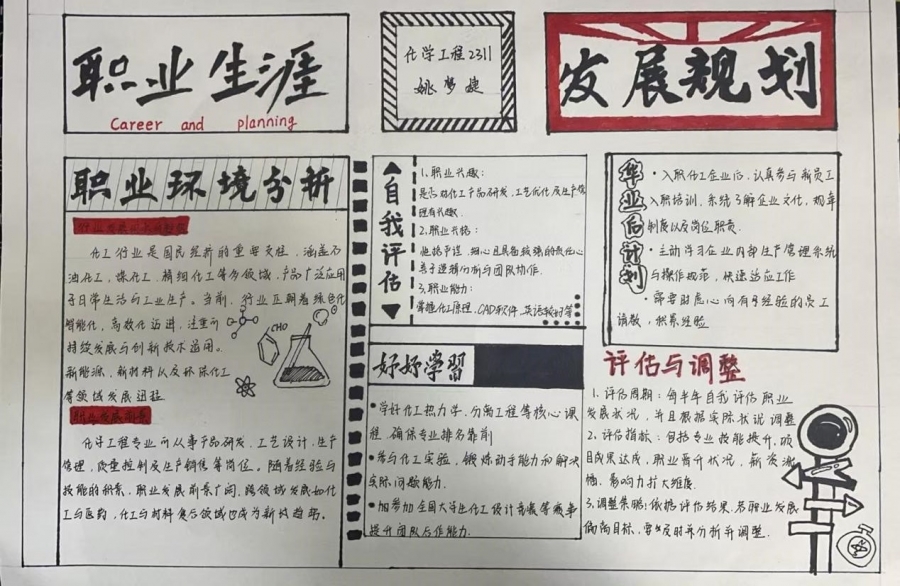 职业生涯
Career and planning
化学工程2311
姚梦婕
发展规划
职业环境分析
化工行业是国民经济的重要支柱，涵盖石
油化工，煤化工，精细化工等多领域，产品广泛应用
于日常生活与工业生产。当前，行业正朝着绿色化
智能化，高效化迈进，注重可
持续发展与创新技术运用。
新能源，新材料以及环保化工
等领域发展迅猛
CHO
职业发展前景
化学工程专业可从事产品研发，工艺设计，生产
管理，质量控制及生产销售等岗位。随着经验与
技能的积累，职业发展前景广阔，跨领域发展如化
工与医药，化工与材料复合领域也成为新的趋势。
自我评估
1.职业兴趣：
是否对化工产品研发，工艺优化及生产管
理有兴趣
2.职业性格：
性格严谨，细心且具备较强的责任心
善于逻辑分析与团队协作
3.职业能力：
掌握化工原理，CAD软件，英语较好等
好好学習
学好化工热力学，分离工程等核心课
程，确保专业排名靠前
参与化工实验，锻炼动手能力和解决
实际问题能力.
加参加全国大学生化工设计竞赛等赛事
提升团队合作能力.
毕业后计划
入职化工企业后，认真参与新员工
入职培训，系统了解企业文化，规章
制度以及岗位职责.
主动学习企业内部生产管理系统
与操作规范，快速适应工作
需要时虚心向有经验的员工
请教，积累经验
评估与调整
1.评估周期：每半年自我评估职业
发展状况，并且根据实际状况调整
2.评估指标：包括专业技能提升，项
目成果达成，职业晋升状况，薪资涨
幅，影响力扩大维度.
3.调整策略：依据评估结果，若职业发展
偏离目标，要及时并分析并调整.